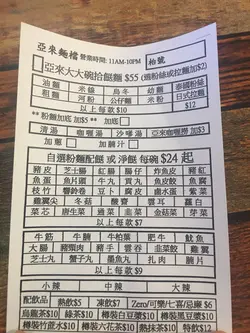 亞來麵檔 營業時間: 11AM-10PM 枱號
亞來大大碗拾餸麵 $55 (選粉絲或拉麵加$2)
油麵 米線 烏冬 幼麵 泰國粉絲
粗麵 河粉 公仔麵 米粉 日式拉麵
以上每款$10 $12
**粉麵加底 加$5 加底
清湯 咖喱湯 沙嗲湯 亞來咖喱撈 加$3
加腩汁
自選粉麵配餸 或 淨餸 每碗 $24 起
豬皮 芝士腸 紅腸 腸仔 炸魚皮 豬紅
魚蛋 魚片頭 牛丸 貢丸 魚皮餃 蘿蔔
枝竹 響鈴卷 豆卜 腐皮 鹵水蛋 紫菜
雞翼尖 冬菇 雲耳
菜芯 唐生菜 生菜 韭菜 金菇菜 芽菜
以上每款$7
牛筋 牛腩 牛柏葉 肥牛 魷魚
大腸 豬頸肉 豬手 雲吞 韭菜餃 雞翼
芝士丸 蟹子丸 墨魚丸 扎肉 腩片
以上每款$9
小辣 中辣 大辣
配飲品 熱飲$5 凍飲$7 Zero/可樂/七喜/忌廉 $6
烏龍茶$10 綠茶$10 樽裝豆漿$10 樽裝黑豆漿$10
樽裝竹蔗$10 樽裝六花茶$10